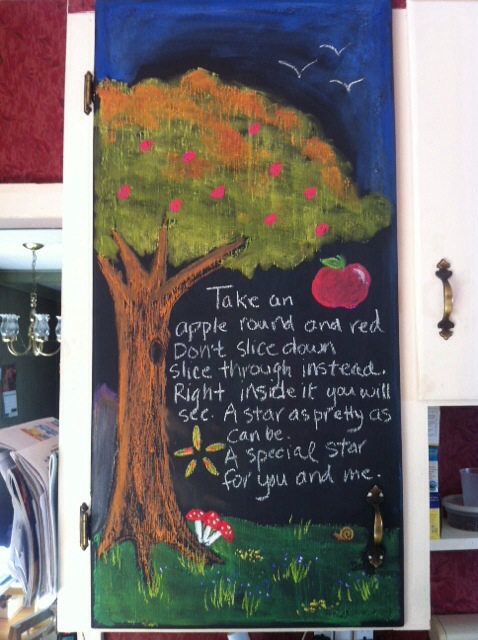 Take an
apple round and red
Don't slice down
slice through instead.
Right inside it you will
see. A star as pretty as
can be.
A special star
for you and me.